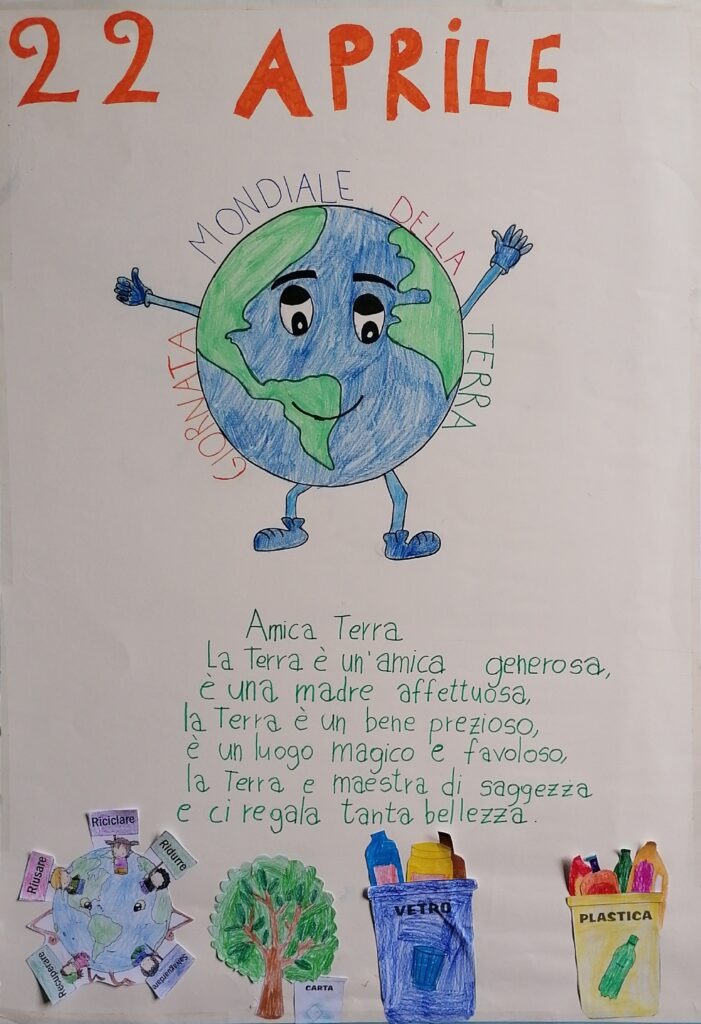 22 APRILE
GIORNATA MONDIALE DELLA TERRA
Amica Terra
La Terra è un'amica generosa,
è una madre affettuosa,
la Terra è un bene prezioso,
è un luogo magico e favoloso,
la Terra e maestra di saggezza
e ci regala tanta bellezza.
Riciclare
Ridurre
Riusare
Recuperare
Salvaguardare
CARTA
VETRO
PLASTICA